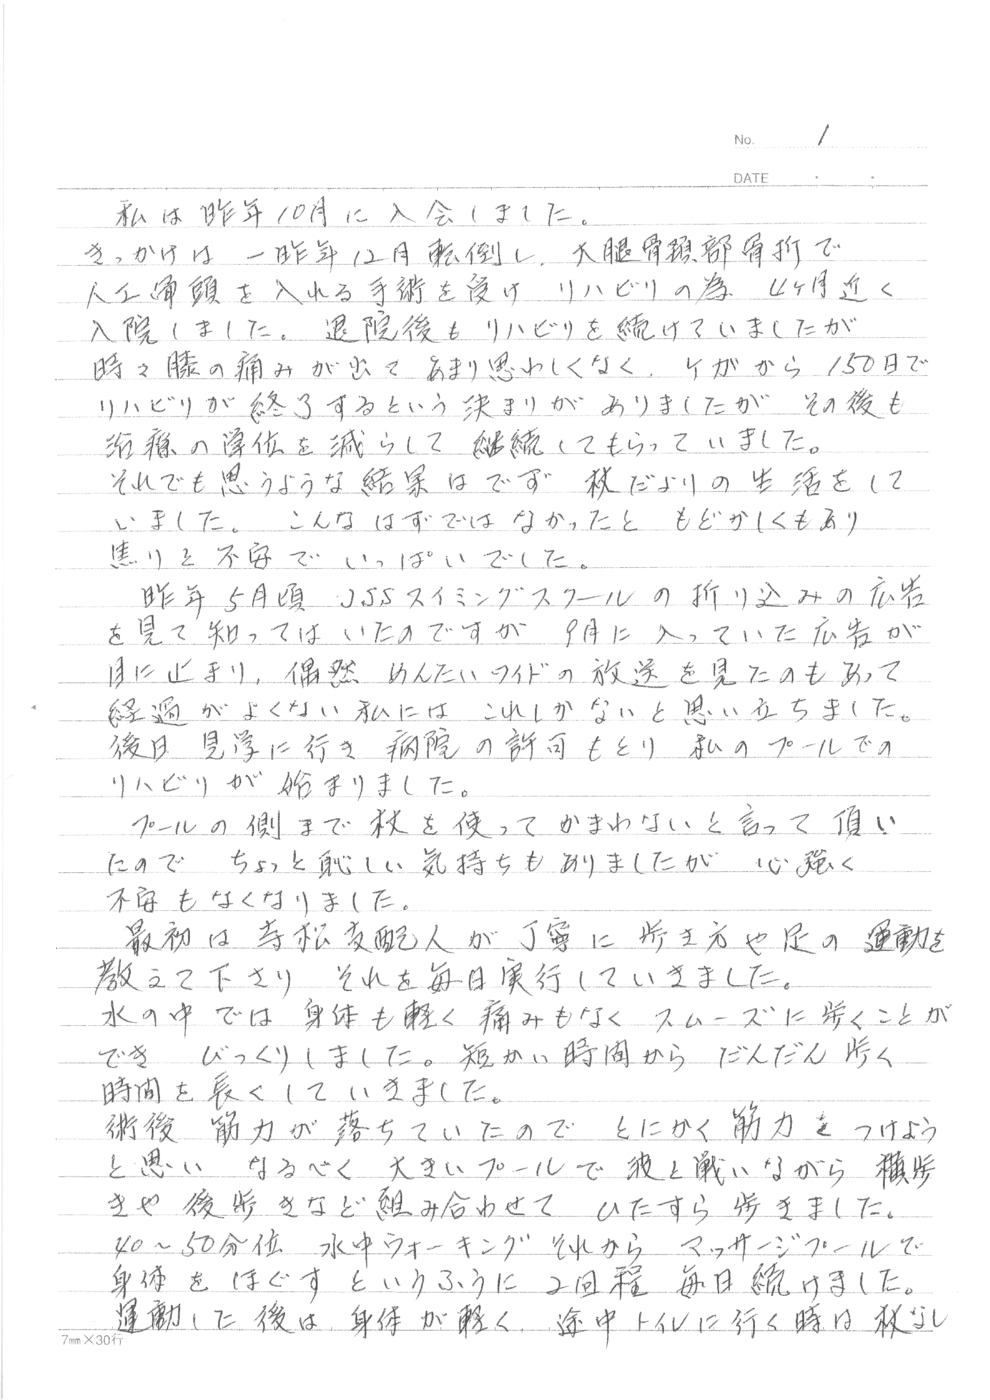 No. 1
DATE ・ ・
私は昨年10月に入会しました。
きっかけは 一昨年12月転倒し、大腿骨頚部骨折で
人工骨頭を入れる手術を受け リハビリの為 4ヶ月近く
入院しました。退院後も リハビリを続けていましたが
時々膝の痛みが出て あまり思わしくなく、ケガから150日で
リハビリが終了するという決まりがありましたが その後も
治療の単位を減らして 継続してもらっていました。
それでも思うような結果はでず 杖だよりの生活をして
いました。こんなはずではなかったと もどかしくもあり
焦りと不安でいっぱいでした。
昨年5月頃 JSSスイミングスクールの折り込みの広告
を見て知ってはいたのですが 9月に入っていた広告が
目に止まり、偶然 めんたいワイドの放送を見たのもあって
経過がよくない私には これしかないと思い立ちました。
後日 見学に行き 病院の許可もとり 私のプールでの
リハビリが始まりました。
プールの側まで杖を使ってかまわないと言って頂い
たので ちょっと恥しい気持ちもありましたが 心強く
不安もなくなりました。
最初は寺松支配人が丁寧に歩き方や足の運動を
教えて下さり それを毎日実行していきました。
水の中では身体も軽く痛みもなくスムーズに歩くことが
でき びっくりしました。短かい時間から だんだん歩く
時間を長くしていきました。
術後 筋力が落ちていたので とにかく筋力をつけよう
と思い なるべく 大きいプールで波と戦いながら 横歩
きや後歩きなど組み合わせて ひたすら歩きました。
40～50分位 水中ウォーキング それから マッサージプールで
身体をほぐすというふうに 2回程 毎日続けました。
運動した後は、身体が軽く、途中トイレに行く時は杖なし
7mm×30行